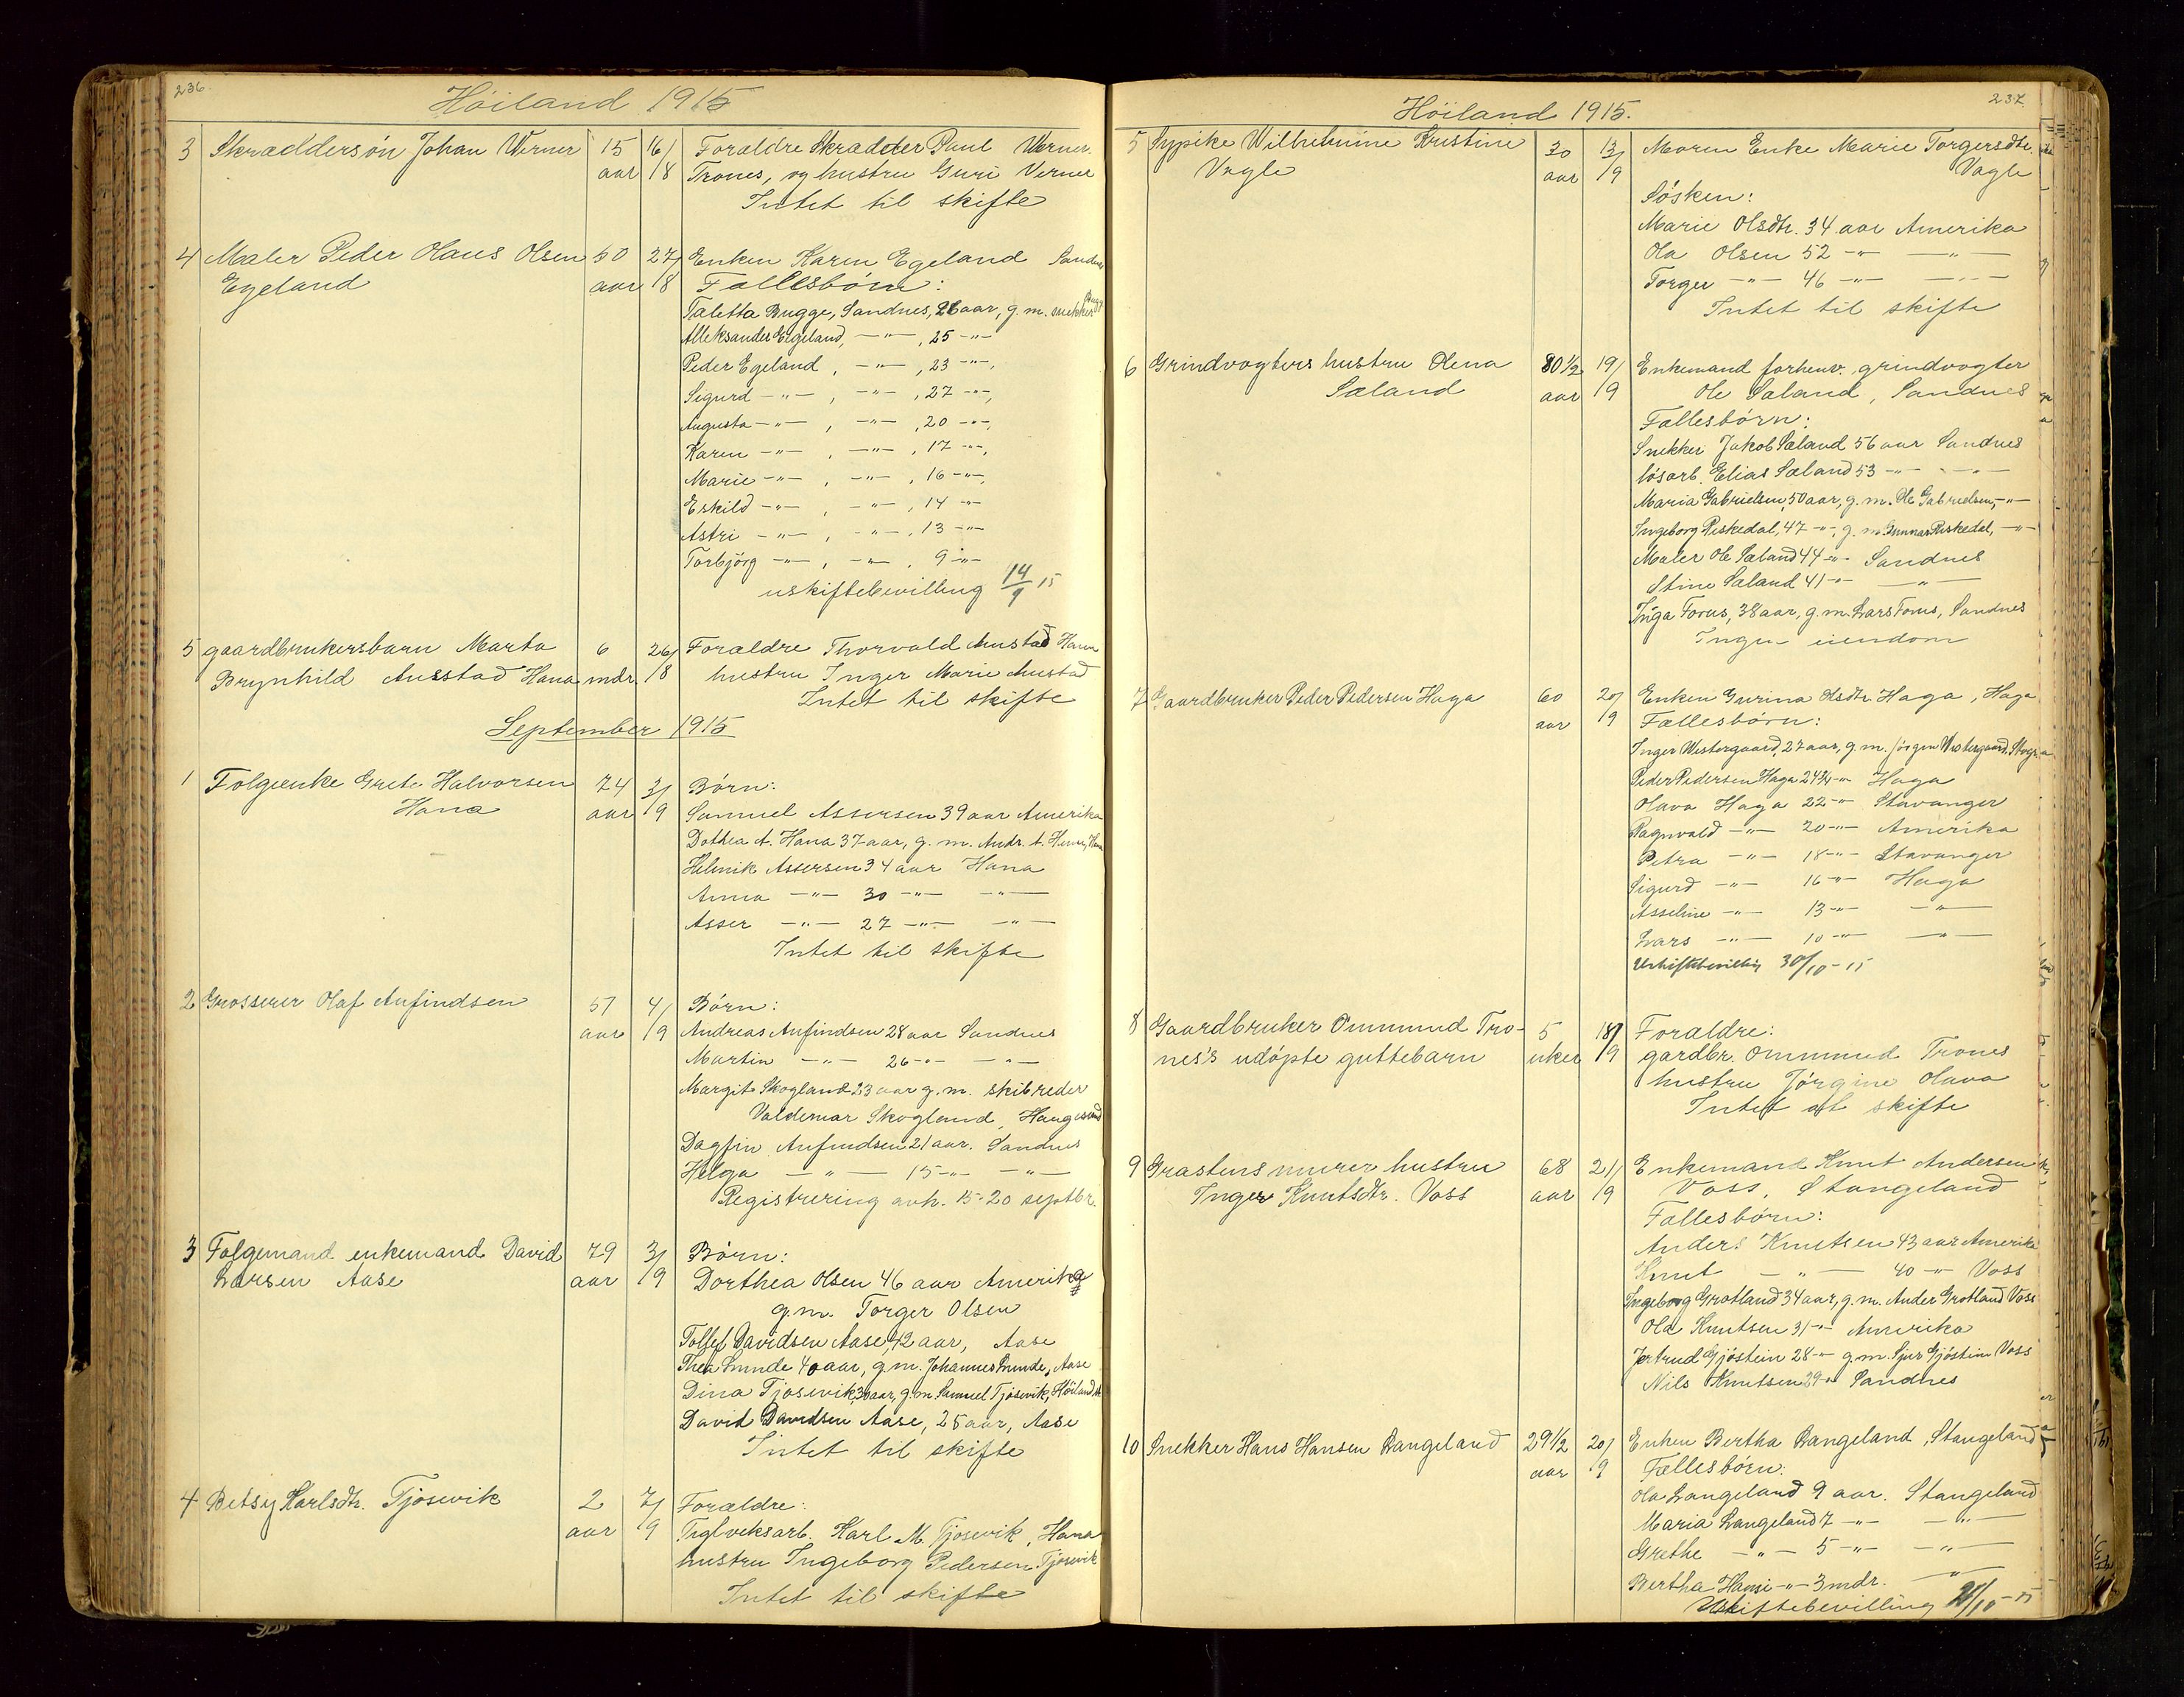 236.
Höiland 1915
3 Skræddersön Johan Werner 15 16/ Forældre Skrædder Paul Werner.
aar 18 Trones, og hustru Guri Verner
Intet til skifte
4 Maler Peder Olaus Olsen 50 27/ Enken Karen Egeland Sandnes
Egeland aar 18 Fællesbörn:
Taletta Bugge, Sandnes, 26 aar, g. m. snekker Bugge
Alleksander Egeland, —"— , 25 —"—
Peder Egeland , —"— , 23 —"—,
Sigurd —"— , —"— , 27 —"—,
Augusta —"— , —"— , 20 —"—,
Karen —"— , —"— , 17 —"—,
Marie —"— , —"— , 16 —"—,
Eskild —"— , —"— , 14 —"—
Astri —"— , —"— , 13 —"—
Torbjörg —"— , —"— , 9 —"—
uskiftebevilling 14/9 15
5 gaardbrukersbarn Marta 6 26/ Forældre Thorvald Austad Hana
Brynhild Austad Hana mdr. 18 hustru Inger Marie Austad
Intet til skifte
September 1915
1 Folgeenke Grete Halvorsen 74 3/ Börn:
Hana aar 19 Samuel Assersen 39 aar Amerika
Dothea A. Hana 37 aar, g. m. Andr. A. Hana, Hana
Helmik Assersen 34 aar Hana
Anna —"— 30 —"— —"—
Asser —"— 27 —"— —"—
Intet til skifte
2 Grosserer Olaf Anfindsen 57 4/ Börn:
aar 19 Andreas Anfindsen 28 aar Sandnes
Martin —"— 26 —"— —"—
Margit Skogland 23 aar g. m. skibreder
Valdemar Skogland, Haugesund
Dagfin Anfindsen 21 aar. Sandnes
Helga —"— 15 —"— —"—
Registrering avh. 15-20 septbr.
3 Folgemand enkemand David 79 3/ Börn:
Larsen Aase aar 19 Dorthea Olsen 46 aar Amerika
g.m. Torger Olsen
Tollef Davidsen Aase, 42 aar, Aase
Thea Lunde 40 aar, g. m. Johannes Lunde, Aase
Dina Tjosevik, 30 aar, g. m. Samuel Tjosevik, Höiland
David Davidsen Aase, 25 aar, Aase
Intet til skifte
4 Betsy Karlsdtr. Tjösevik 2 7/ Forældre:
aar 9 Teglveksarb. Karl M. Tjosevik, Hana
hustru Ingeborg Pedersen Tjosevik
Intet til skifte
237
Höiland 1915.
5 Sypike Wilhelmine Kristine 30 13/ Moren Enke Marie Torgersdtr.
Vagle aar 19 Vagle
Sösken:
Marie Olsdtr. 34 aar Amerika
Ola Olsen 52 —"— —"—
Torger —"— 46 —"— —"—
Intet til skifte
6 Grindvogters hustru Olena 80 1/2 19/ Enkemand forhenv. grindvogter
Sæland aar 19 Ole Sæland, Sandnes
Fællesbörn:
Snekker Jakob Sæland 56 aar Sandnes
lösarb. Elias Sæland 53 —"— —"—
Maria Gabrielsen, 50 aar, g. m. Ole Gabrielsen, —"—
Ingeborg Riskedal, 47 —"—, g. m. Gunnar Riskedal, —"—
Maler Ole Sæland 44 —"— Sandnes
Stine Sæland 41 —"— —"—
Inga Forus, 38 aar, g. m. Lars Forus, Sandnes
Ingen eiendom
7 Gaardbruker Peder Pedersen Haga 60 20/ Enken Gurina Olsdtr. Haga, Haga
aar 19 Fællesbörn:
Inger Westergaard, 27 aar, g. m. Jörgen Westergaard,
Peder Pedersen Haga 24 3/4 —"— Haga
Olava Haga 22 —"— Stavanger
Ragnvald —"— 20 —"— Amerika
Petra —"— 18 —"— Stavanger
Sigurd —"— 16 —"— Haga
Asseline —"— 13 —"— —"—
Lars —"— 10 —"— —"—
Uskiftebevilling 30/10-15
8 Gaardbruker Ommund Tro- 5 18/ Forældre:
nes's udöpte guttebarn uker 19 gardbr. Ommund Trones
hustru Jörgine Olava
Intet at skifte
9 Grastensmurer hustru 68 21/ Enkemand Knut Andersen
Inger Knutsdtr. Voss aar 19 Voss, Stangeland
Fællesbörn:
Anders Knutsen 43 aar Amerika
Knut —"— 40 —"— Voss
Ingeborg Grotland 34 aar, g. m. Ander Grotland Voss
Ola Knutsen 31 —"— Amerika
Jertrud Gjöstein 28 —"— g. m. Sjur Gjöstein Voss
Nils Knutsen 29 —"— Sandnes
10 Snekker Hans Hansen Langeland 29 1/2 20/ Enken Bertha Langeland, Stangeland
aar 9 Fællesbörn:
Ola Langeland 9 aar. Stangeland
Maria Langeland 7 —"— —"—
Grethe —"— 5 —"— —"—
Bertha Hansi —"— 3 mdr. —"—
Uskiftebevilling /10-15